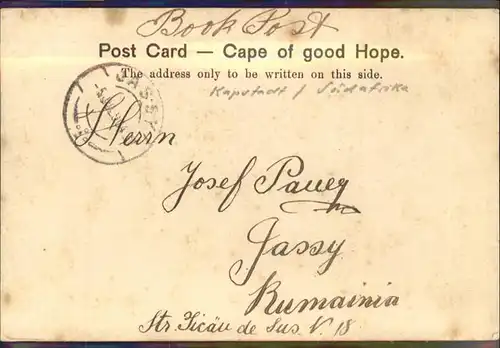 Book Post
Post Card — Cape of good Hope.
The address only to be written on this side.
Kapstadt / Südafrika
JASSY
Herrn
Josef
Jassy
Rumainia
Str. de Sus N. 18